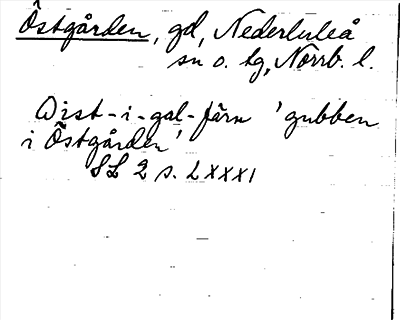 Östgården, gd, Nederluleå
sn o. tg, Norrb. l.
Wist-i-gal-färn 'gubben
i Östgården'
SL 2 s. LXXXI